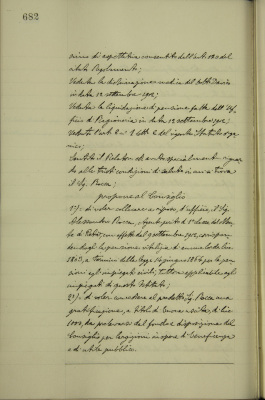 682
sione di aspettativa consentito dall'art. 120 del
citato Regolamento;
Veduta la dichiarazione medica del Dott.
in data 12 settembre 1902;
Veduta la liquidazione di pensione fatta dall'Uf-
ficio di Ragioneria in data 12 settembre 1902;
Veduto l'art. 2 lett. del vigente Statuto orga-
nico;
Sentito il Relatore ed avuto specialmente riguar-
do alle tristi condizioni di salute in cui si trova
il Sg. Bocca;
propone al Consiglio
1°) di voler collocare a riposo, d'ufficio, il Sg.
Alessandro Bocca, di 1a classe del Mon-
te di Pietà, con effetto dal 1902, corrispon-
dendogli la pensione vitalizia di annue lorde lire
1863, a termini della legge 1864 per le pen-
sioni agli impiegati civili, tuttora applicabile agli
impiegati di questo Istituto;
2°) di voler concedere al predetto Sg. Bocca una
gratificazione, a titolo di buona uscita, di lire
1000, da prelevarsi dal fondo a disposizione del
Consiglio per erogazioni in opere di beneficenza
e di utilità pubblica.